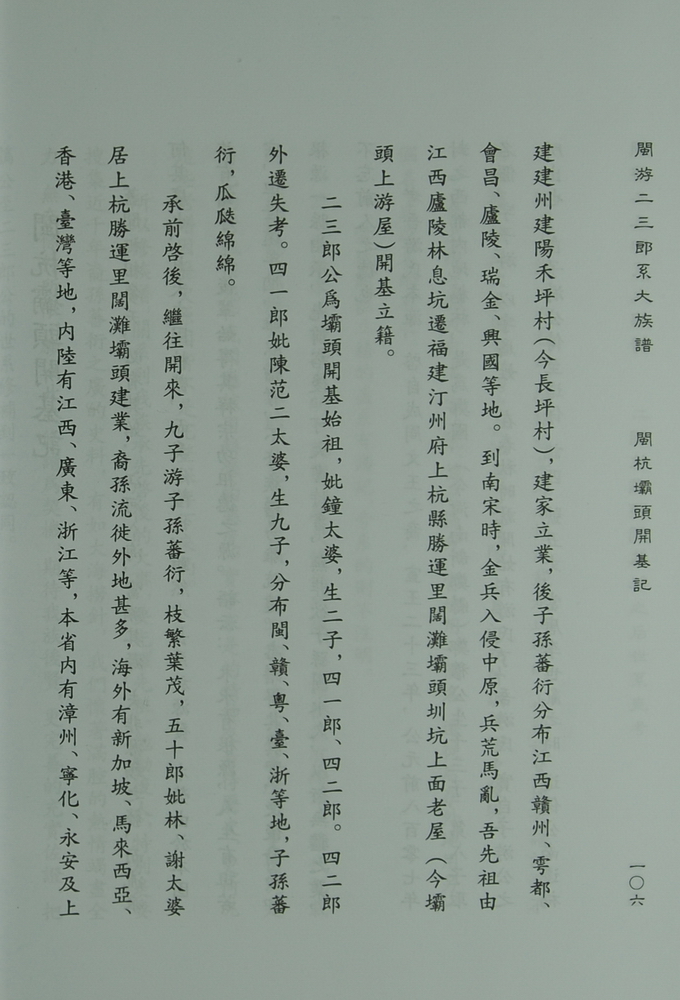 閩游二三郎系大族譜 閩杭壩頭開基記 一〇六
建建州建陽禾坪村(今長坪村)，建家立業，後子孫蕃衍分布江西贛州、雩都、
會昌、廬陵、瑞金、興國等地。到南宋時，金兵入侵中原，兵荒馬亂，吾先祖由
江西廬陵林息坑遷福建汀州府上杭縣勝運里闊灘壩頭圳坑上面老屋(今壩
頭上游屋)開基立籍。
二三郎公爲壩頭開基始祖，妣鐘太婆，生二子，四一郎、四二郎。四二郎
外遷失考。四一郎妣陳范二太婆，生九子，分布閩、贛、粤、臺、浙等地，子孫蕃
衍，瓜瓞綿綿。
承前啓後，繼往開來，九子游子孫蕃衍，枝繁葉茂，五十郎妣林、謝太婆
居上杭勝運里闊灘壩頭建業，裔孫流徙外地甚多，海外有新加坡、馬來西亞、
香港、臺灣等地，内陸有江西、廣東、浙江等，本省内有漳州、寧化、永安及上